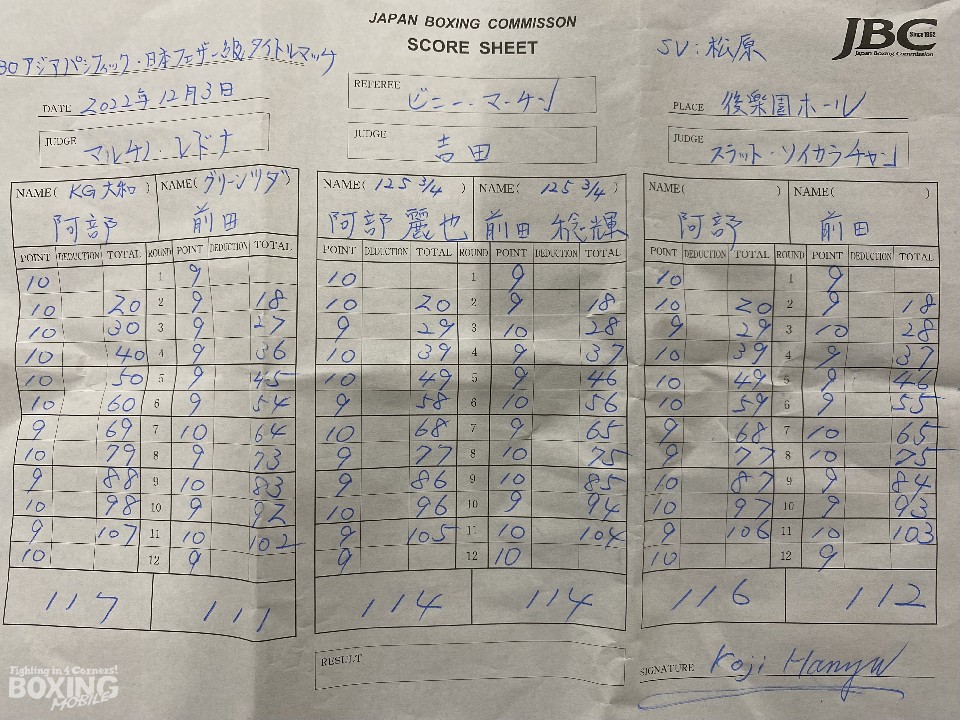 JAPAN BOXING COMMISSON
SCORE SHEET
JBC Since 1952
Japan Boxing Commission
SV:松原
BOアジアパシフィック・日本フェザー級タイトルマッチ
DATE 2022年12月3日
REFEREE ビニー・マーチン
PLACE 後楽園ホール
JUDGE マルチノ・レドナ
JUDGE 吉田
JUDGE スラット・ソイカラチャン
NAME( KG大和 ) NAME( グリーンツダ )
阿部 前田
POINT DEDUCTION TOTAL ROUND POINT DEDUCTION TOTAL
10 1 9
10 20 2 9 18
10 30 3 9 27
10 40 4 9 36
10 50 5 9 45
10 60 6 9 54
9 69 7 10 64
10 79 8 9 73
9 88 9 10 83
10 98 10 9 92
9 107 11 10 102
10 12 9
117 111
NAME( 125 3/4 ) NAME( 125 3/4 )
阿部 麗也 前田 稔輝
POINT DEDUCTION TOTAL ROUND POINT DEDUCTION TOTAL
10 1 9
10 20 2 9 18
9 29 3 10 28
10 39 4 9 37
10 49 5 9 46
9 58 6 10 56
10 68 7 9 65
9 77 8 10 75
9 86 9 10 85
10 96 10 9 94
9 105 11 10 104
9 12 10
114 114
NAME( NAME(
阿部 前田
POINT DEDUCTION TOTAL ROUND POINT DEDUCTION TOTAL
10 1 9
10 20 2 9 18
9 29 3 10 28
10 39 4 9 37
10 49 5 9 46
10 59 6 9 55
9 68 7 10 65
9 77 8 10 75
10 87 9 9 84
10 97 10 9 93
9 106 11 10 103
10 12 9
116 112
RESULT
SIGNATURE Koji Hanyu
Fighting in 4 Corners!
BOXING
MOBILE